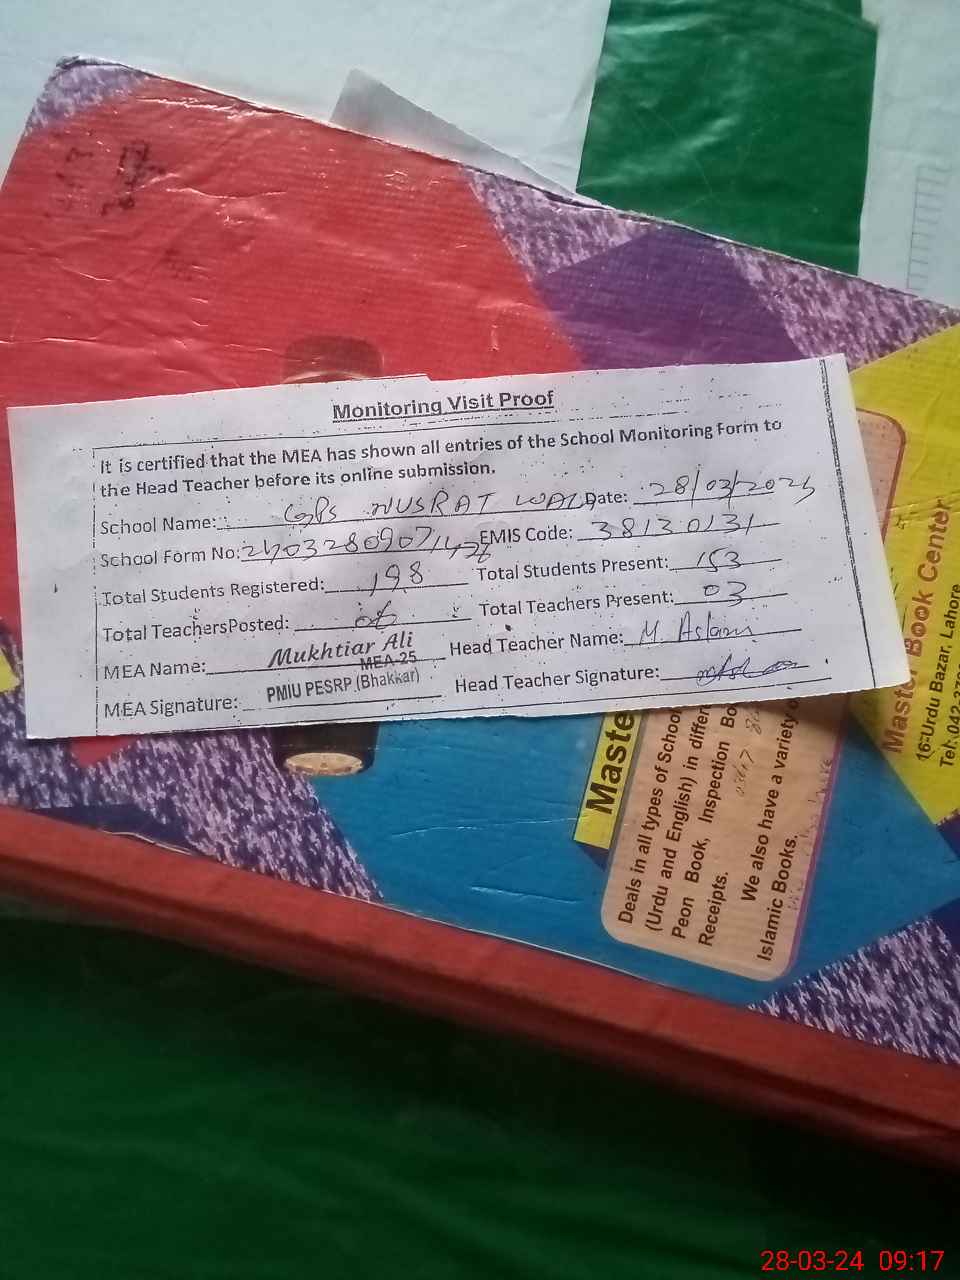 Monitoring Visit Proof
It is certified that the MEA has shown all entries of the School Monitoring Form to
the Head Teacher before its online submission.
School Name: GPS NUSRAT WALA Date: 28/03/2024
School Form No: EMIS Code: 38130131
Total Students Registered: 198 Total Students Present: 153
Total TeachersPosted: Total Teachers Present: 03
MEA Name: Mukhtiar Ali Head Teacher Name: M Aslam
MEA-25
MEA Signature: PMIU PESRP (Bhakkar) Head Teacher Signature:
Maste
Deals in all types of School
(Urdu and English) in differ
Peon Book, Inspection Bo
Receipts.
We also have a variety o
Islamic Books.
Master Book Center
16-Urdu Bazar, Lahore
Tel: 042-372
28-03-24 09:17